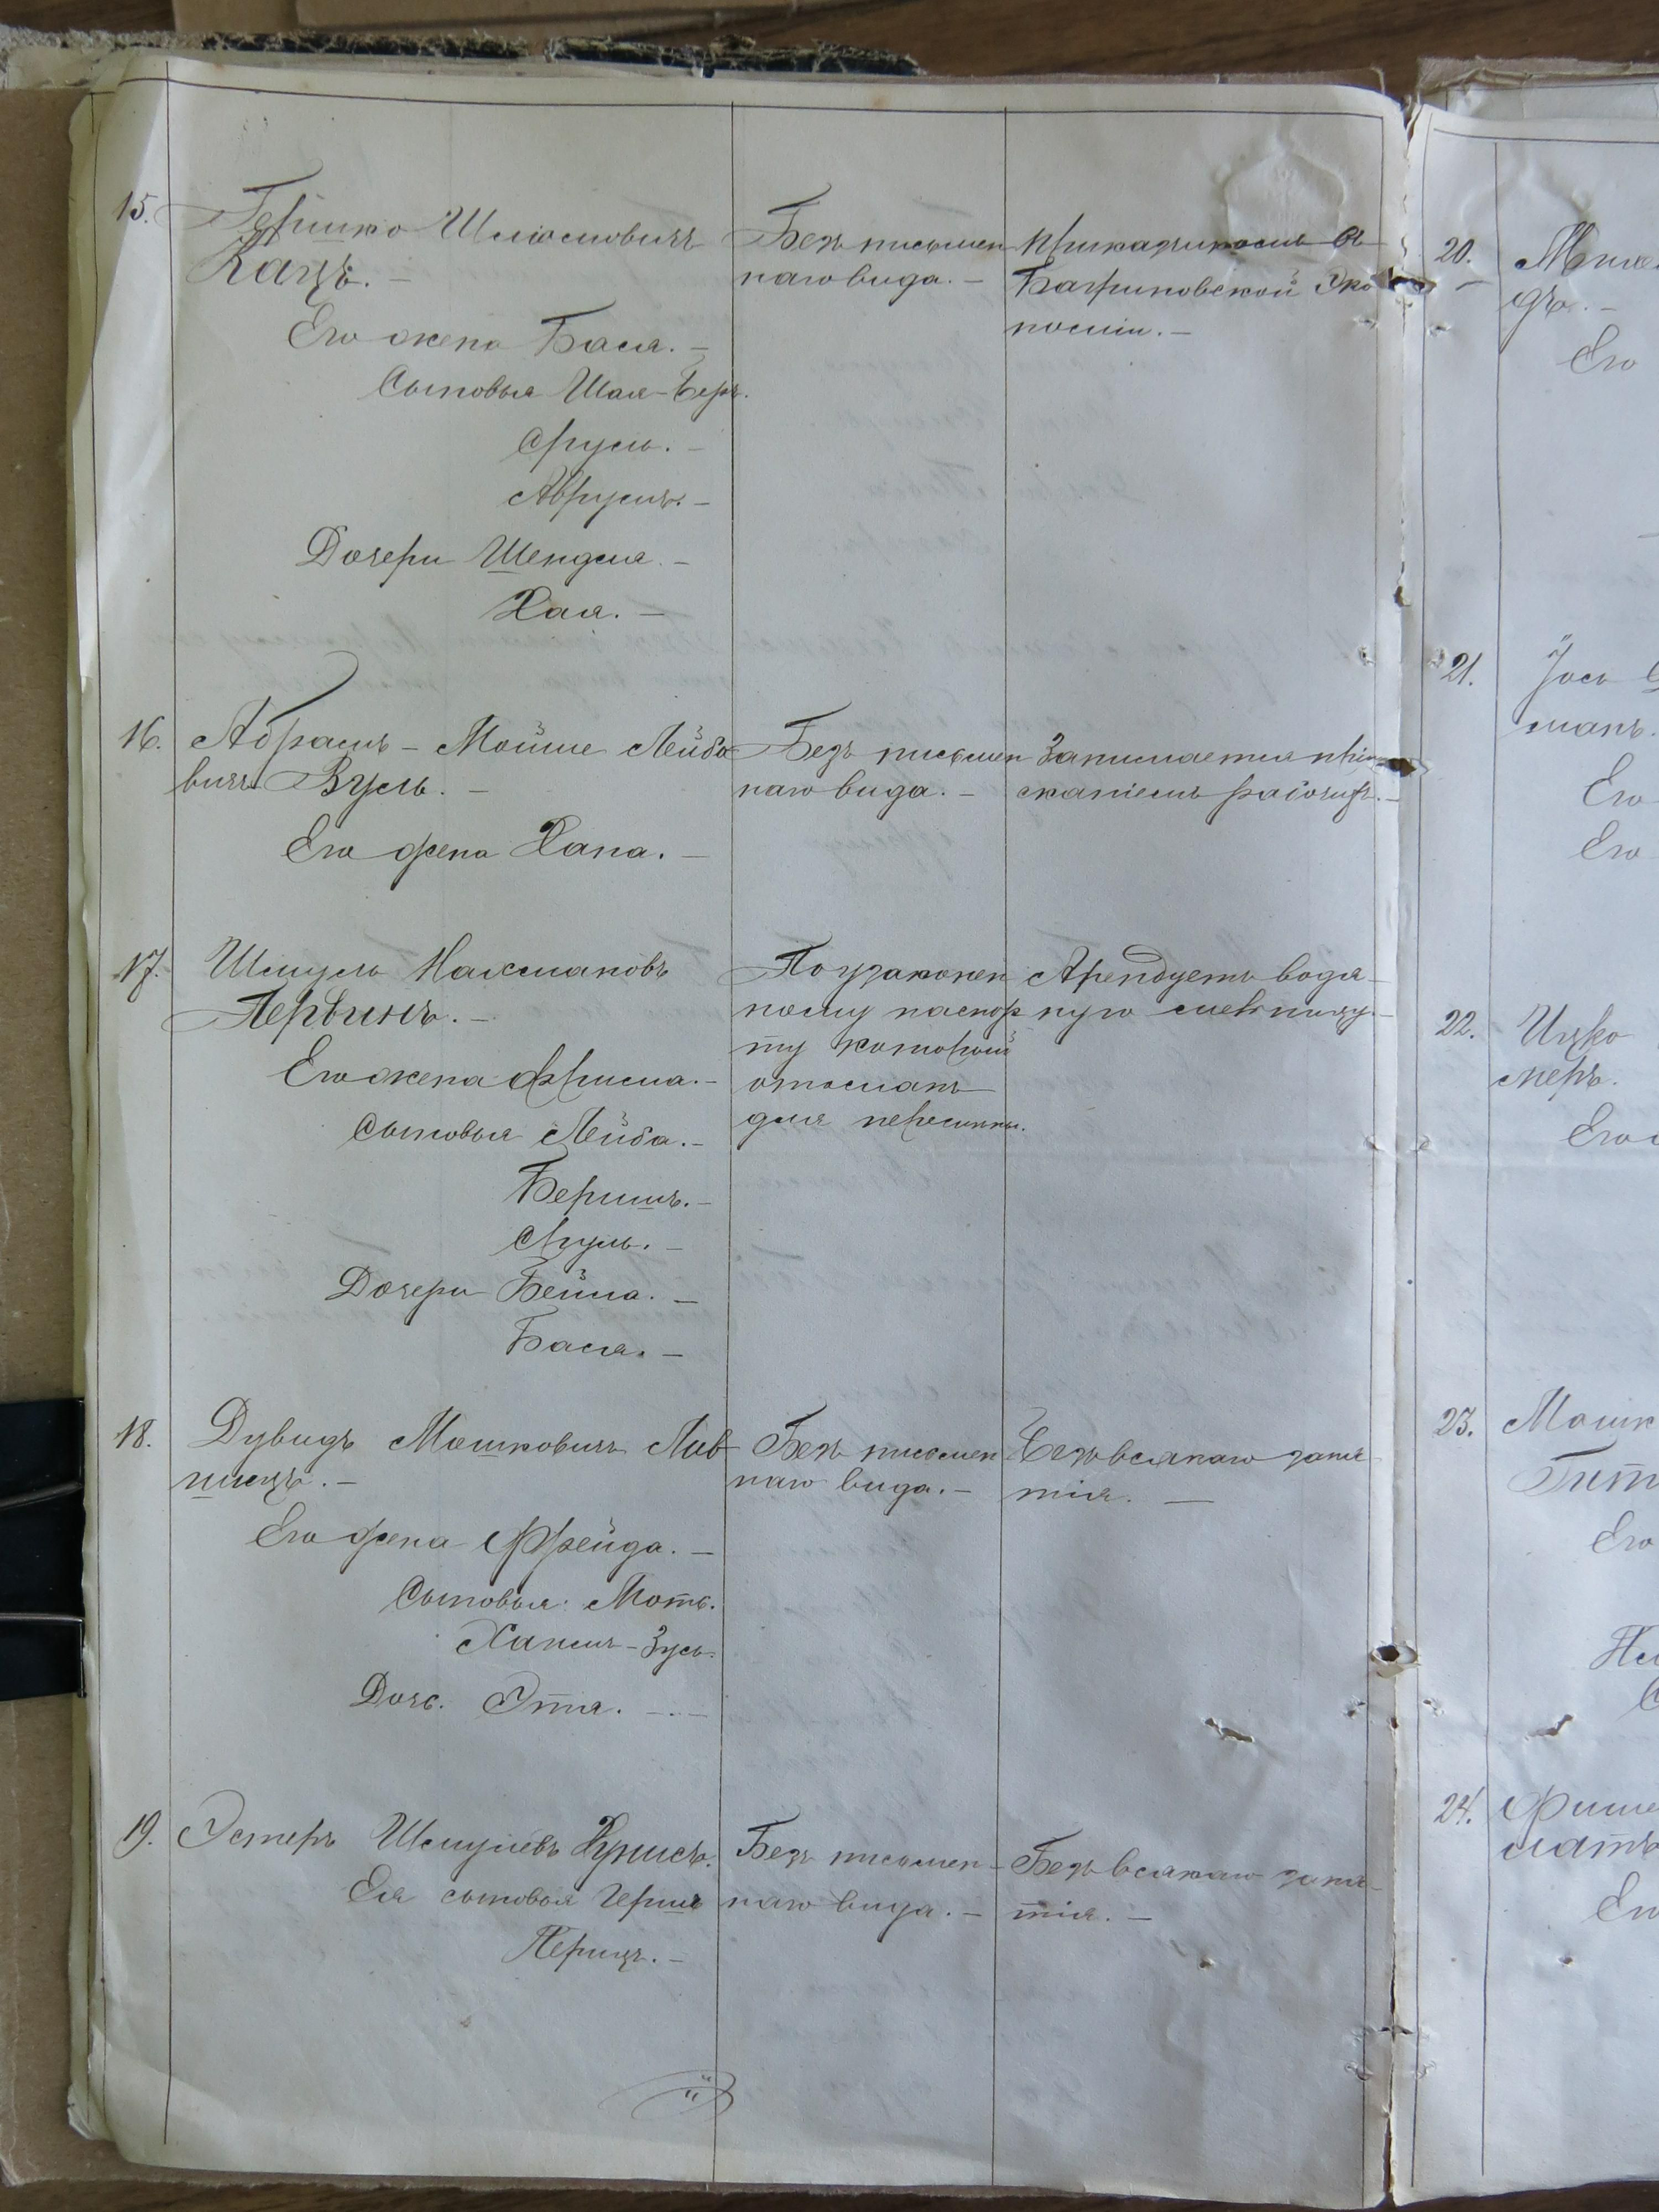 15. Гершко Шлиомовичъ
Кацъ. —
Его жена Бася. —
Сыновья Шая-Беръ.
Сруль. —
Аврумъ. —
Дочери Шендля. —
Хая. —
Безъ письмен
наго вида. —
Прикащикомъ въ
Багриновской Эко
номіи. —
16. Абрамъ-Мойше Лейбо
вичъ Зусь. —
Его жена Хана. —
Безъ письмен
наго вида. —
Занимается прі
исканіемъ рабочихъ. —
17. Шмуль Нахмановъ
Первинъ. —
Его жена Фрима. —
Сыновья Лейба. —
Беришъ. —
Сруль. —
Дочери Бейла. —
Бася. —
По узаконен
ному паспор
ту который
отосланъ
для перемены.
Арендуетъ водя
ную мельницу. —
18. Дувидъ Мошковичъ Лив
шицъ. —
Его жена Фрейда. —
Сыновья: Моть.
Хаимъ-Зусь.
Дочь. Этля. —
Безъ письмен
наго вида. —
Безъ всякаго заня
тія. —
19. Эстеръ Шмулiевъ
Ея сыновья Герш
Перецъ. —
Безъ письмен-
наго вида. —
Безъ всякаго заня
тія. —
20.
дъ. —
Его
21. Іось
манъ.
Его
Его
22. Ицко
Его
23. Мошк
Его
24. Фише
Его